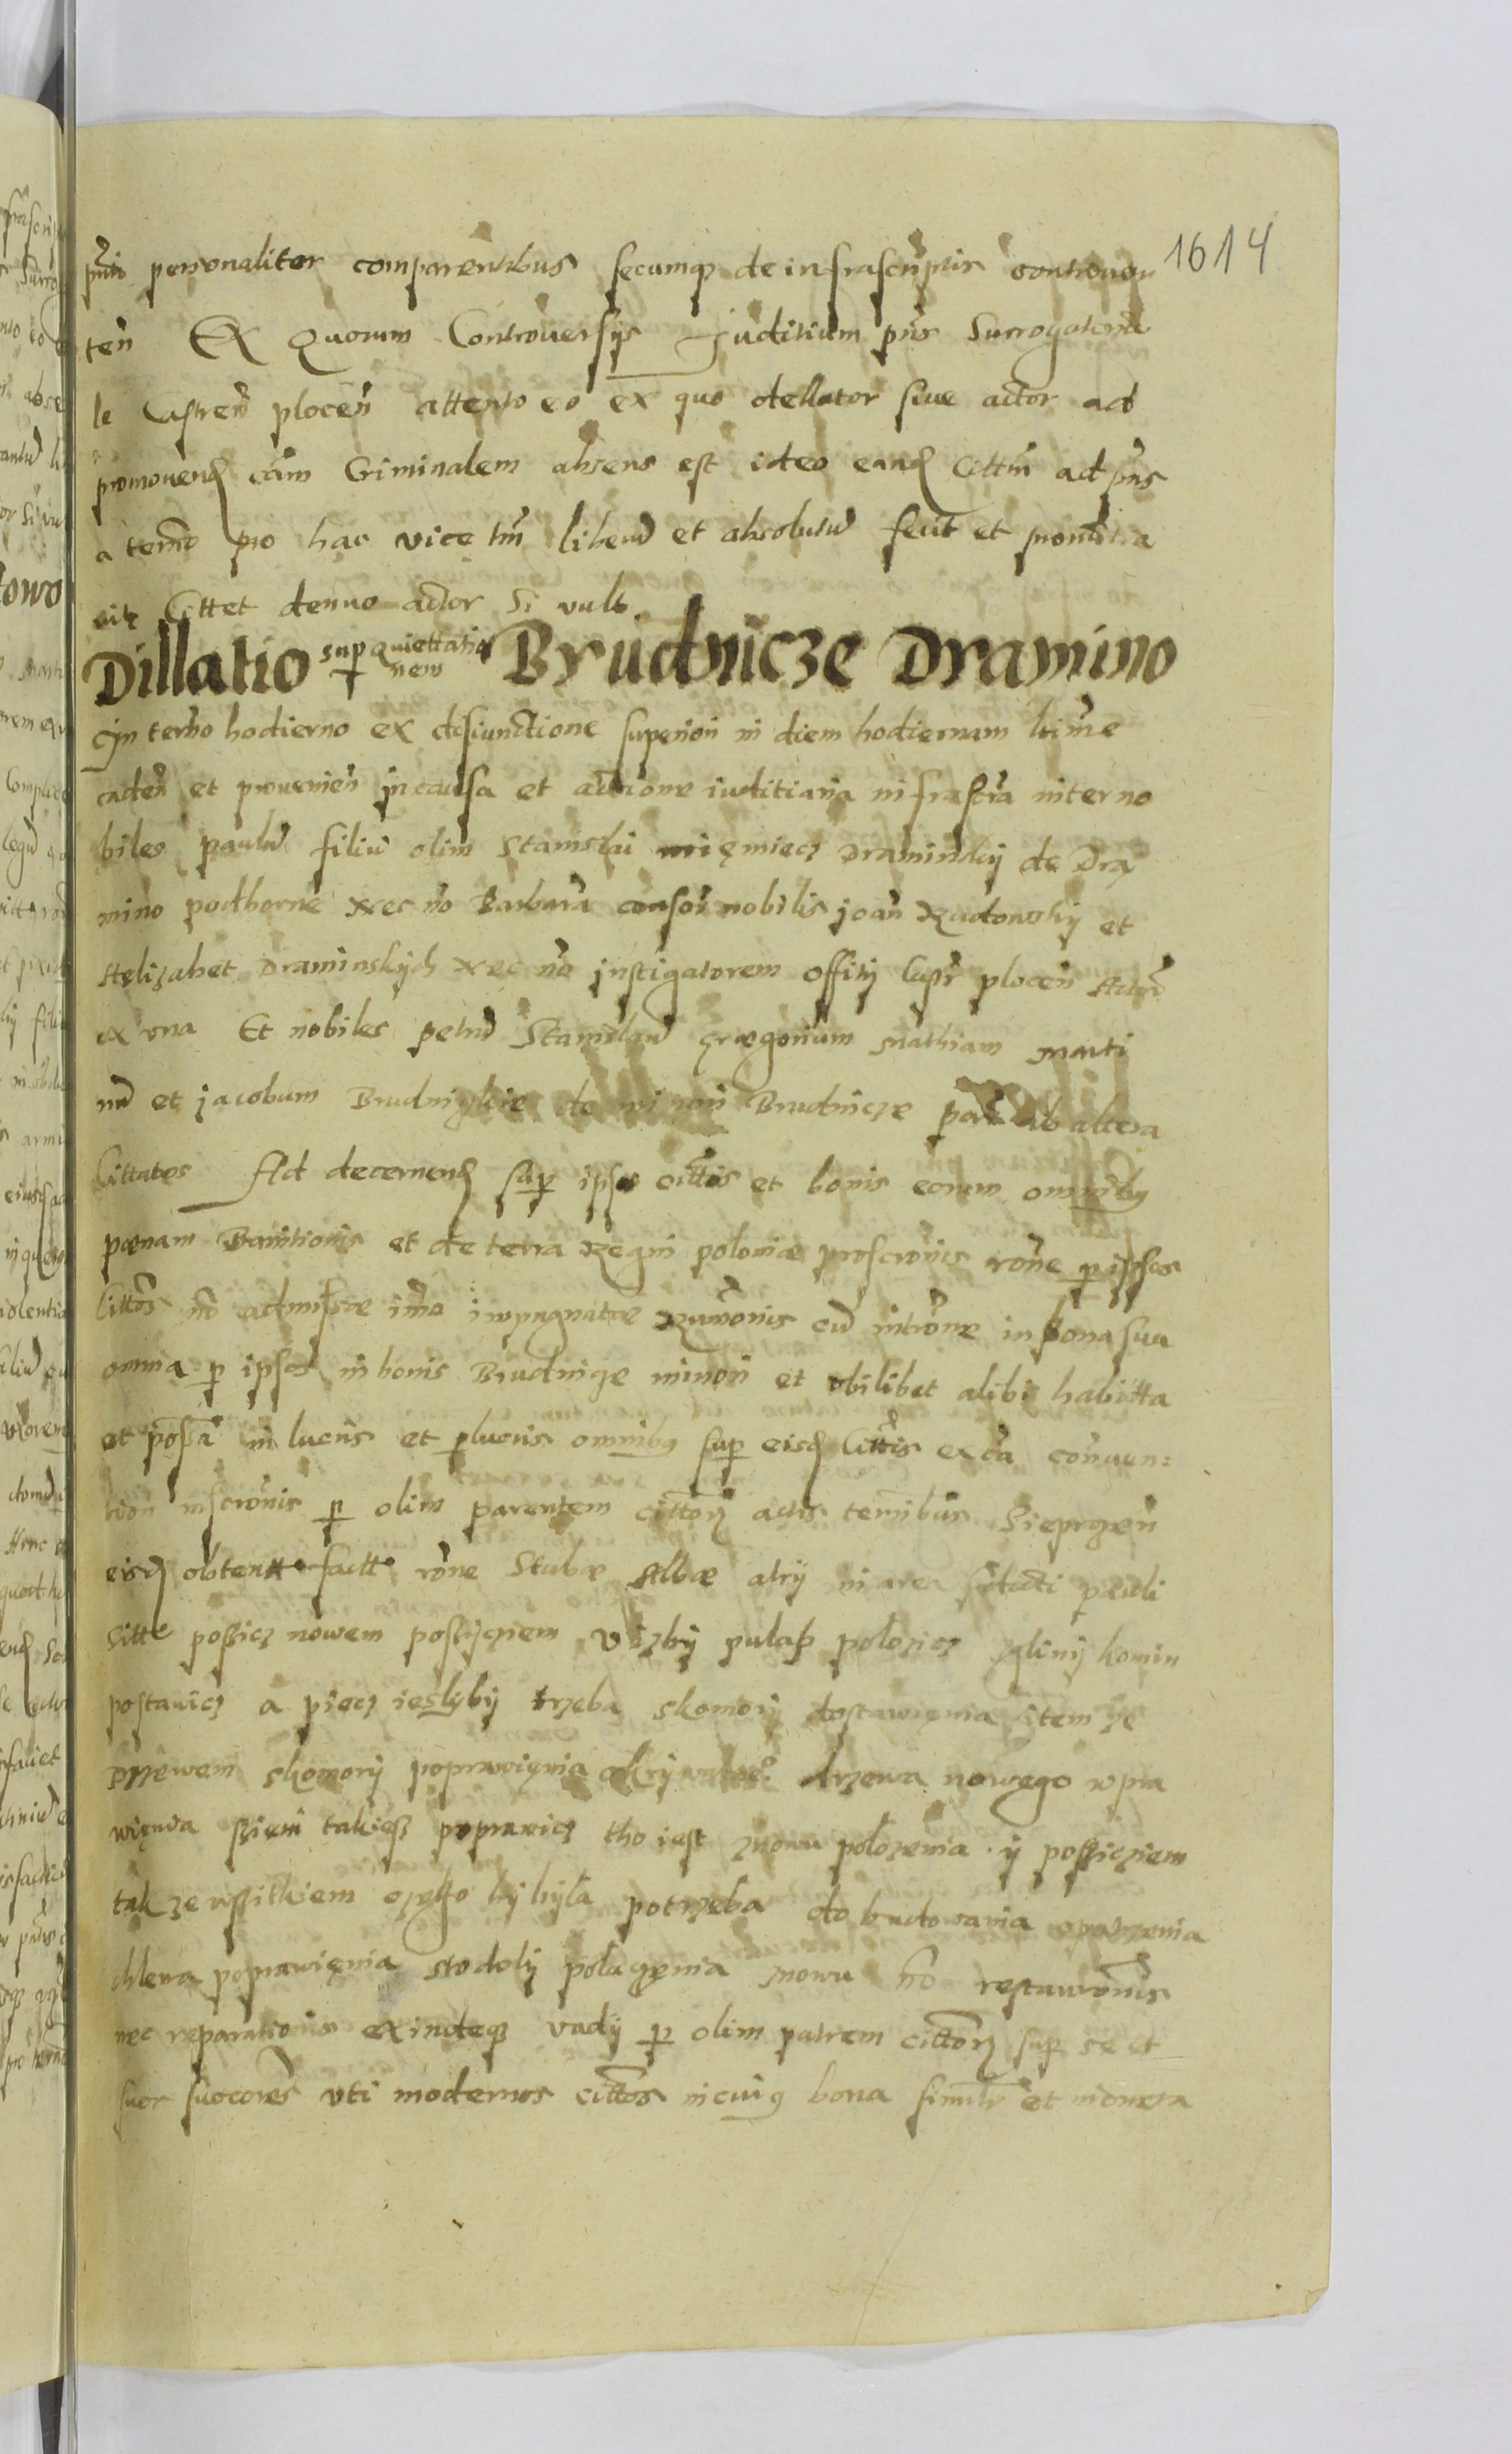 1614
pnti personaliter comparentibus secumq de infrascriptis controver
ten Ex Quorum Controversys Juditium pns Surrogatoria
le Castren plocen attento eo ex quo dellator sive actor ad
promovend cam Criminalem absens est ideo eand Cittm ad pns
a termo pro hac vice tm liberu et absolutu fecit et pronutia
vit Cittet denuo actor si vult
Dillatio sup quiettatio
nem Brudnicze Dramino
In termo hodierno ex disiunctione superiori in diem hodiernam ltime
caden et provenien in causa et actione iuditiaria infrascra inter no
biles paulu filiu olim Stanislai Draminskij de Dra
mino podborne nec no Barbara consor nobilis joan Radomskij et
Helizabet Draminskych nec no instigatorem offitij Castr plocen Actor
ex una Et nobiles petru Stanislau gregorium Mathiam Marti
nu et jacobum Brudniczkie de minori Brudnicze par ab altera
Cittatos Ad decernend sup ipsis cittis et bonis eorum omnibq
poenam Bannitionis et de terra Regni polonia proscronis rone p ipsos
Cittos no admissae imo impugnatae Rumonis cu introne in bona sua
omnia p ipsos in bonis Brudnicze minori et ubilibet alibi habitta
et possa in lucris et plucris omnibq sup eisd Cittis ex ca conven:
tion inscronis p olim parentem cittor actis terribus Sieprczen
eisd obtentt factt rone Stubae Albae atrij in area pauli
Sitte possicz nowem possyciem Vizby pulap polozicz zgliny komin
postavicz a piecz ieslyby trzeba skomory dostawienia item ze
Drzewem skomory poprawienia drzewa nowego wpra
wienia sziem takiesz poprawicz tho iest znowu polozenia y possiciem
tak ze wszitkiem czego by była potrzeba do budowania opatrzenia
chlewa poprawienia stodoly znowu no restauronis
nec reparationis exindeq vadij p olim patrem cittor sup se et
suor succores uti modernos cittos bona simulr et